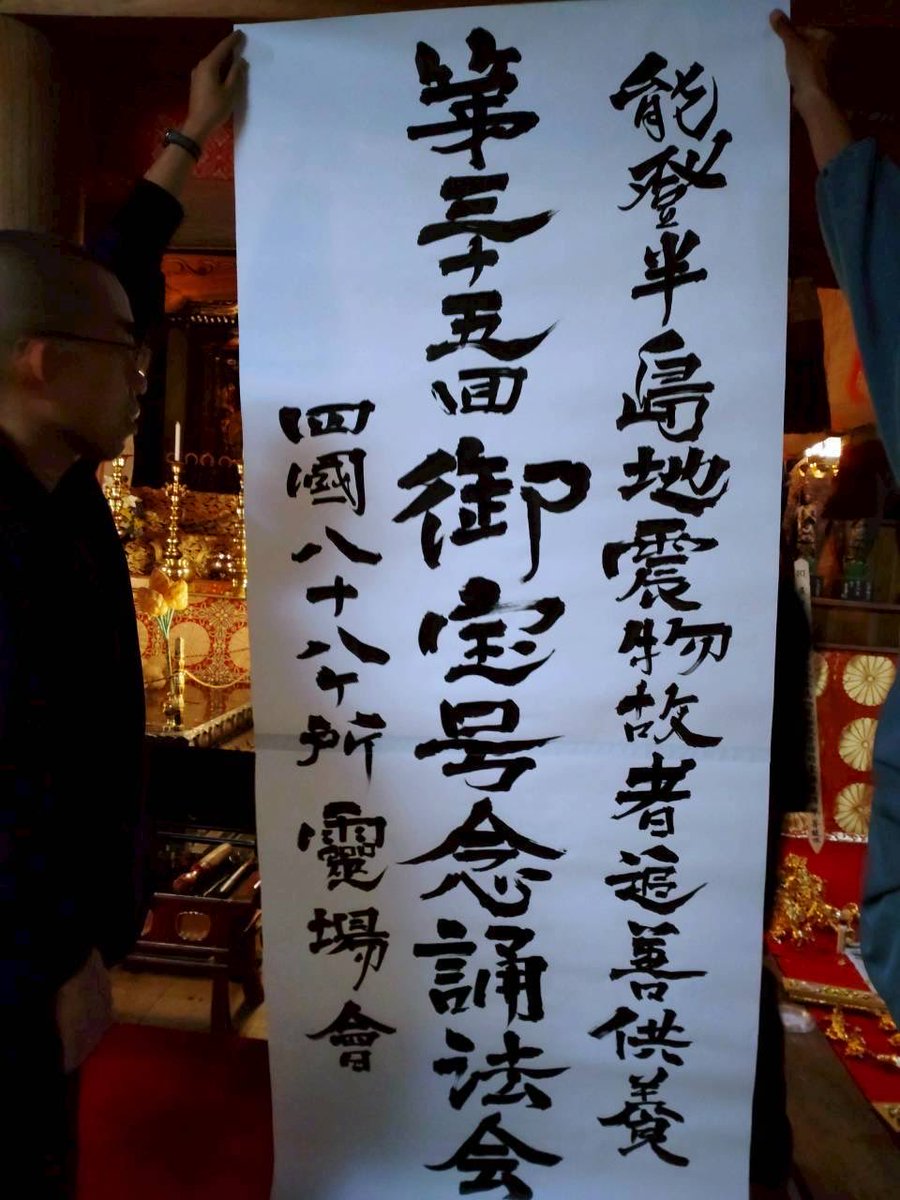 能登半島地震物故者追善供養
第三十五回御宝号念誦法会
四國八十八ヶ所靈場會